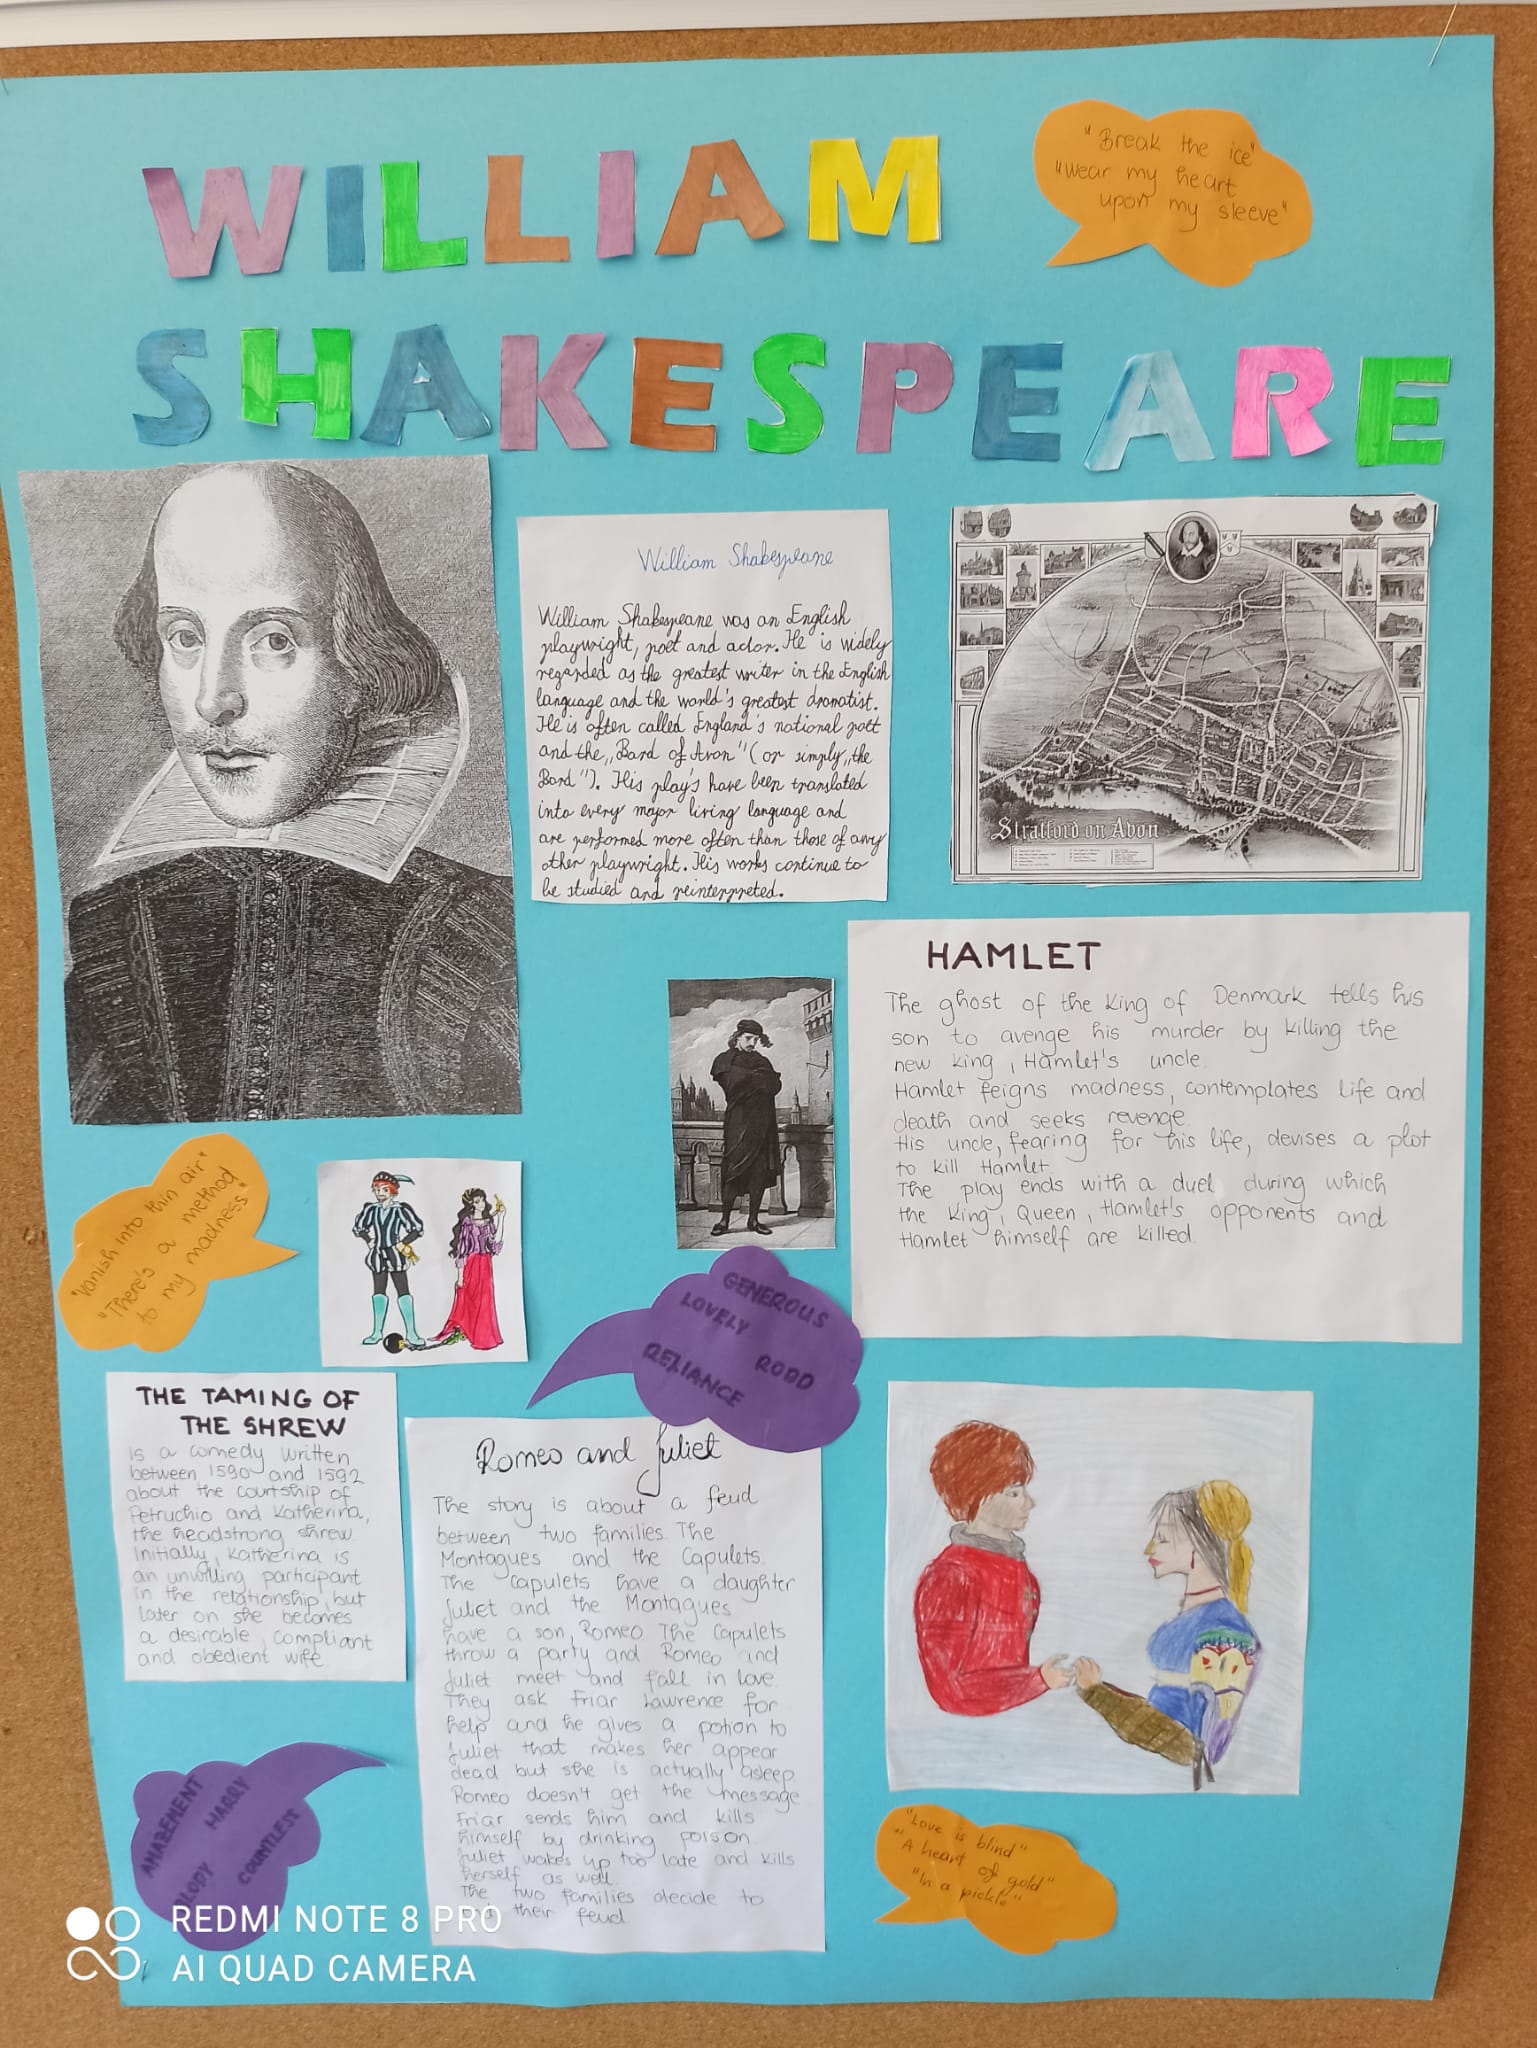 WILLIAM
SHAKESPEARE
"Break the ice"
"wear my heart
upon my sleeve"
William Shakespeare
William Shakespeare was an English
playwright, poet and actor. He is widely
regarded as the greatest writer in the English
language and the world's greatest dramatist.
He is often called England's national poet
and the „Bard of Avon" (or simply „the
Bard"). His play's have been translated
into every major living language and
are performed more often than those of any
other playwright. His works continue to
be studied and reinterpreted.
Stratford on Avon
HAMLET
The ghost of the King of Denmark tells his
son to avenge his murder by killing the
new king, Hamlet's uncle.
Hamlet feigns madness, contemplates life and
death and seeks revenge.
His uncle, fearing for his life, devises a plot
to kill Hamlet.
The play ends with a duel during which
the King, Queen, Hamlet's opponents and
Hamlet himself are killed.
"Vanish into thin air"
"There's a method
to my madness"
GENEROUS
LOVELY
RODD
RELIANCE
THE TAMING OF
THE SHREW
is a comedy written
between 1590 and 1592
about the courtship of
Petruchio and Katherina,
the headstrong shrew.
Initially, Katherina is
an unwilling participant
in the relationship, but
later on she becomes
a desirable, compliant
and obedient wife.
Romeo and Juliet
The story is about a feud
between two families. The
Montagues and the Capulets.
The Capulets have a daughter
Juliet and the Montagues
have a son, Romeo. The Capulets
throw a party and Romeo and
Juliet meet and fall in love.
They ask Friar Lawrence for
help and he gives a potion to
Juliet that makes her appear
dead but she is actually asleep.
Romeo doesn't get the message
Friar sends him and kills
himself by drinking poison.
Juliet wakes up too late and kills
herself as well.
The two families decide to
their feud.
AMAZEMENT
HARRY
COUNTLESS
"Love is blind"
"A heart of gold"
"In a pickle"
REDMI NOTE 8 PRO
AI QUAD CAMERA